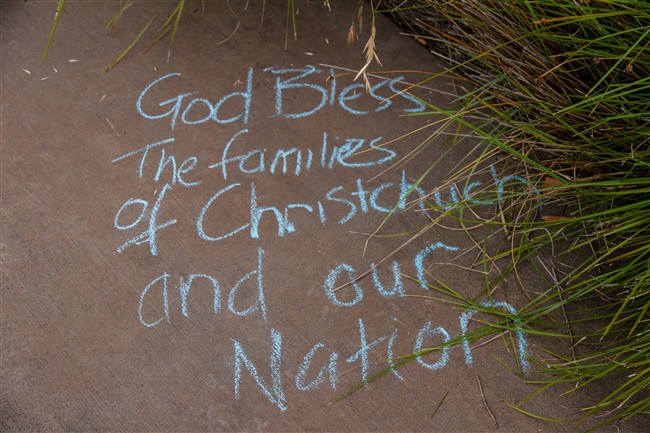 God Bless
The families
of Christchuch
and our
Nation